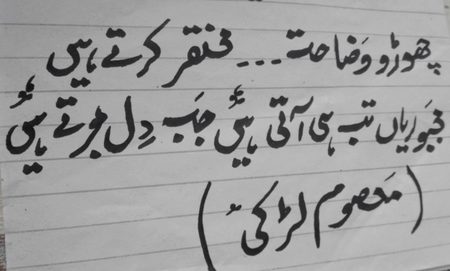 چھوڑو وَضاحت ... مختصر کرتے ہیں
مجبوریاں تب ہی آتی ہیں جَب دِل بھرتے ہیں
(معصوم لڑکی)